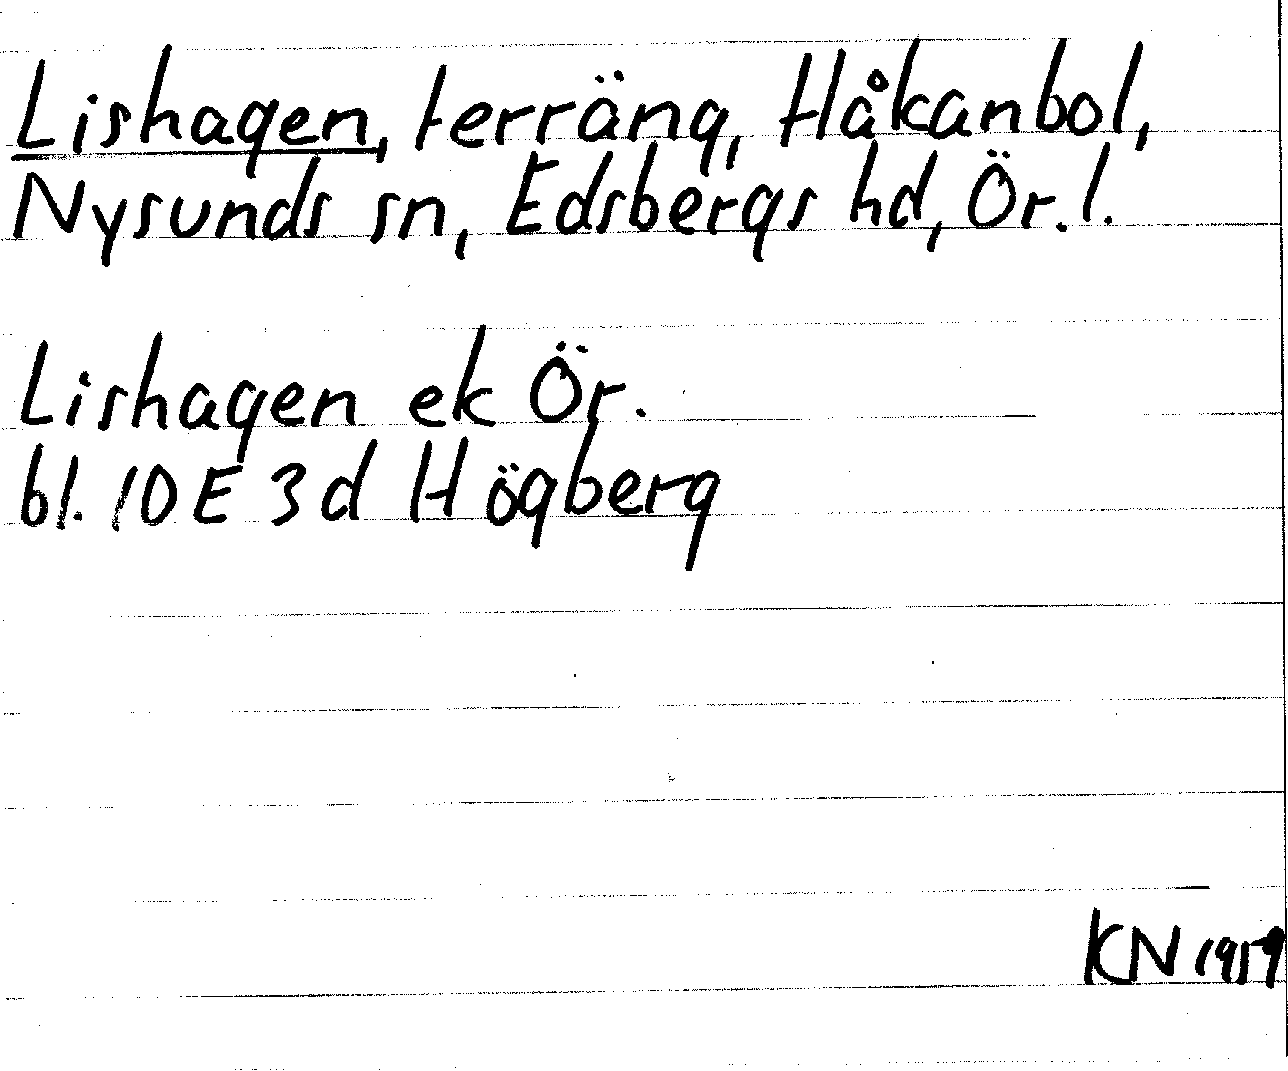 Lishagen, terräng, Håkanbol,
Nysunds sn, Edsbergs hd, Ör. l.
Lishagen ek Ör.
bl. 10 E 3 d Högberg
KN 1959